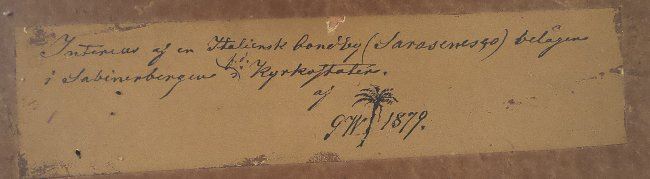 Interieur af en Italiensk bondby (Sarasenesgo) belägen
i Sabinerbergens Kyrkostater.
af
GW 1879.